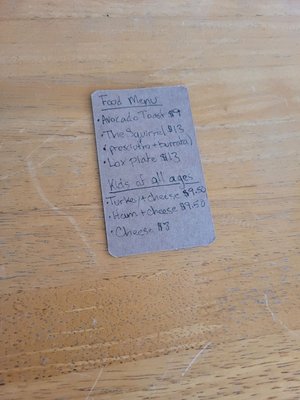 Food Menu
• Avocado Toast $9
• The Squirrel $13
• (prosciutto + burrata)
• Lox Plate $13
Kids of all ages
• Turkey + cheese $9.50
• Ham + cheese $9.50
• Cheese $3